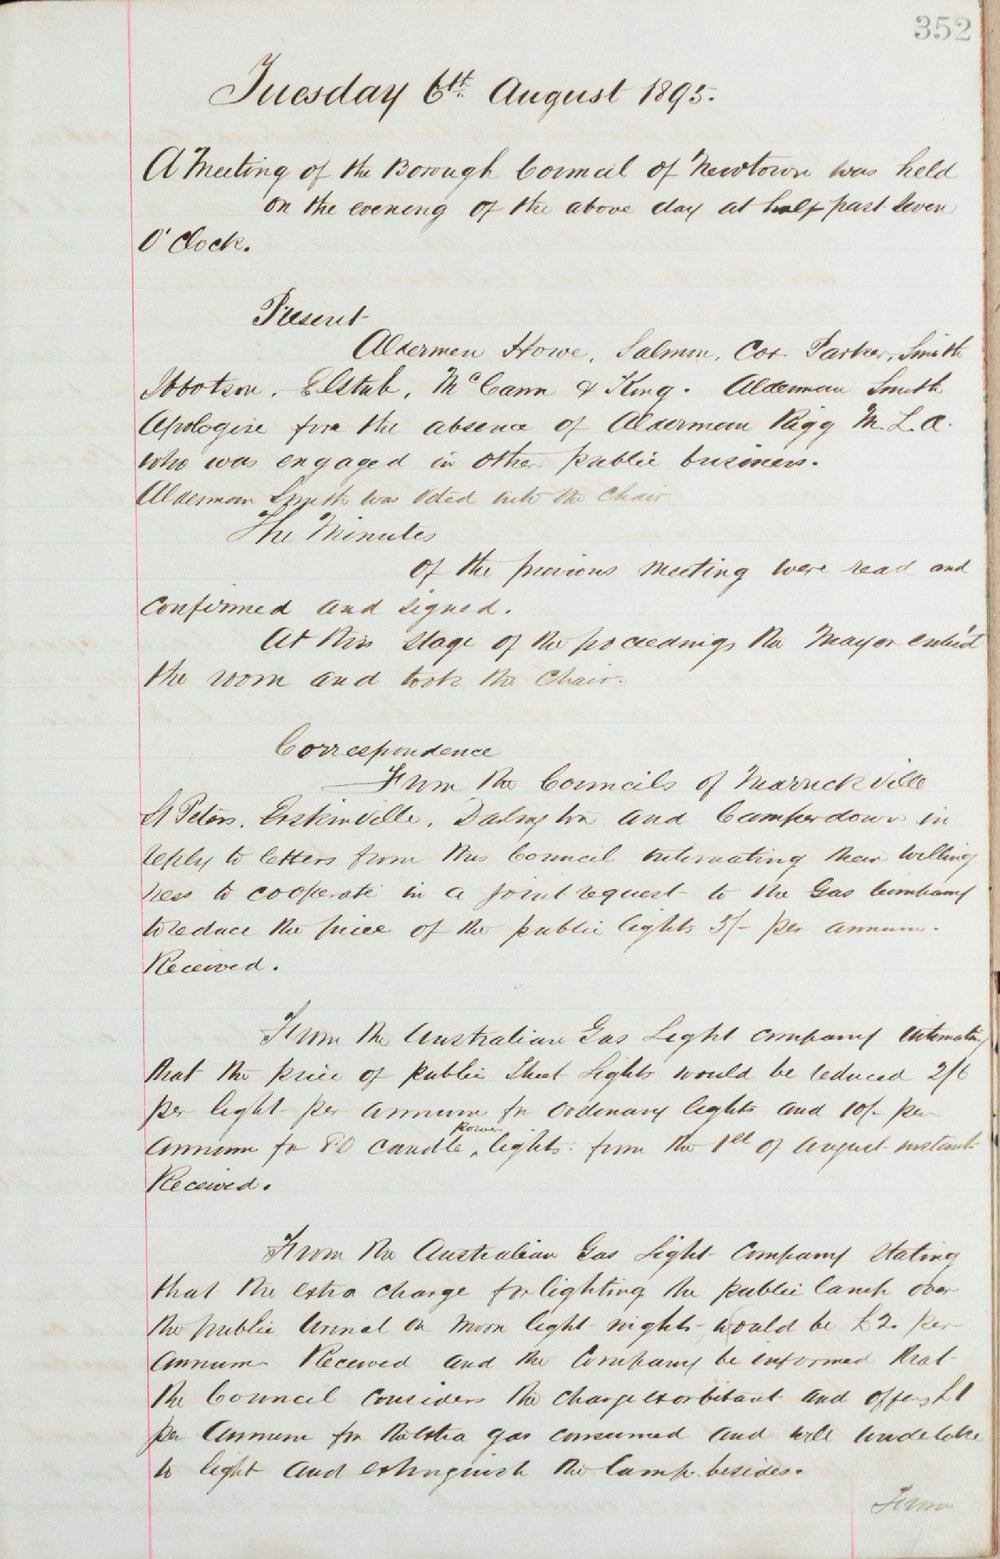 352
Tuesday 6th August 1895.
A Meeting of the Borough Council of Newtown was held
on the evening of the above day at half past seven
O'Clock.
Present
Aldermen Howe, Salmon, Cox Parker, Smith
Ibbotson, Elstub, McCann & King. Alderman Smith
Apologise for the absence of Alderman Rigg M.L.A.
who was engaged in other public business.
Alderman Smith was Voted into the Chair
The Minutes
of the previous meeting were read and
confirmed and signed.
At this stage of the proceedings the Mayor enter'd
the room and took the Chair.
Correspondence
From the Councils of Marrickville
St Peters, Erskinville, Darlington and Camperdown in
reply to letters from this Council intimating their willing
ness to cooperate in a joint request to the Gas Company
to reduce the price of the public lights 5/- per annum.
Received.
From the Australian Gas Light company intimating
that the price of public Street Lights would be reduced 2/6
per light per annum for Ordinary lights and 10/- per
power
annum for 80 candle lights from the 1st of August instant
Received.
From the Australian Gas Light Company stating
that the extra charge for lighting the public lamp over
the public Urinal on moon light nights would be £2 per
annum. Received and the Company be informed that
the Council considers the charge exorbitant and offers £1
per Annum for the extra gas consumed and will undertake
to light and extinguish the lamp besides.
From